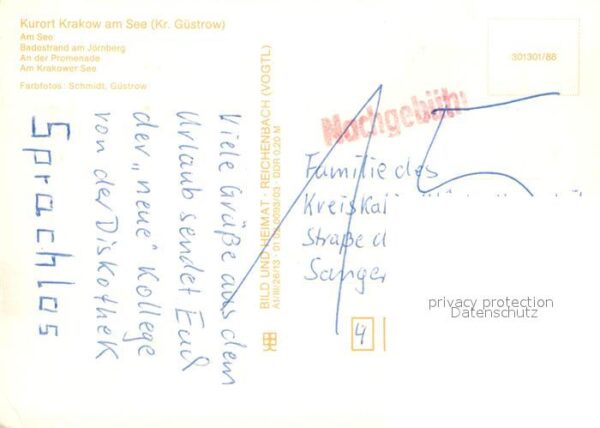 Kurort Krakow am See (Kr. Güstrow)
Am See
Badestrand am Jörnberg
An der Promenade
Am Krakower See
Farbfotos: Schmidt, Güstrow
301301/88
Nachgebühr
Viele Grüße aus dem
Urlaub sendet Euch
der „neue" Kollege
von der Diskothek
Sprachlos
BILD UND HEIMAT · REICHENBACH (VOGTL)
A1/III/26/13 · 01 03 0693/03 · DDR 0,20 M
Familie des
Kreiskal
Straße d
Sanger
4
privacy protection
Datenschutz